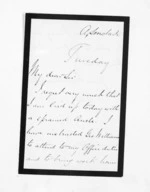 Tuesday
My dear Sir
I regret very much that
I am laid up today with
a sprained ancle. I
have instructed Mr William
to attend to my Office duties
and to bring work here